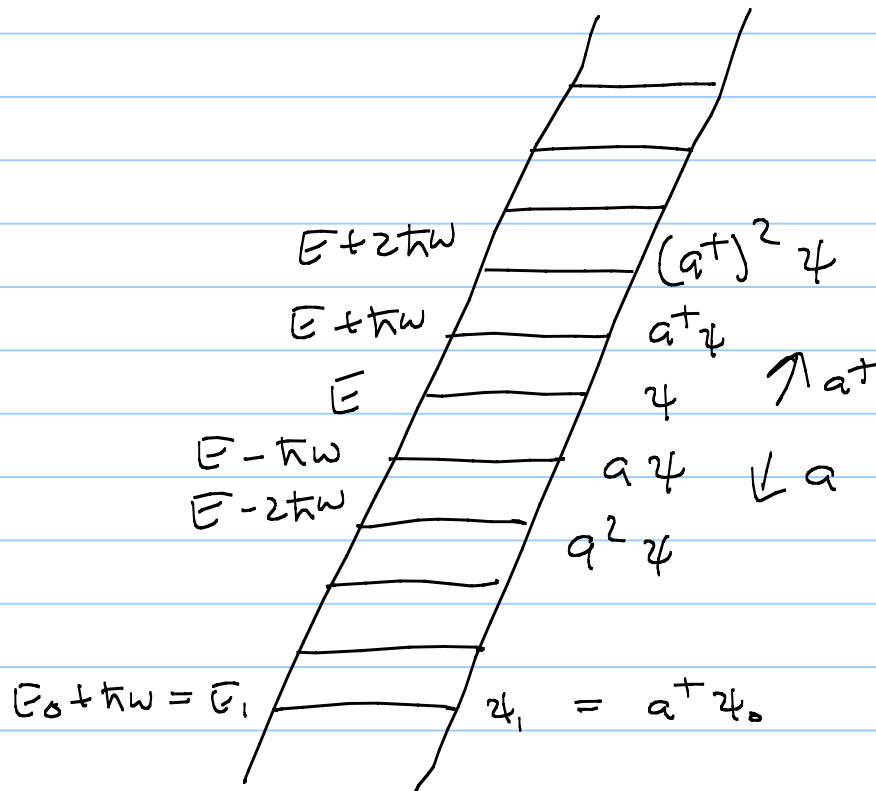 E+2ħω (a†)² ψ
E+ħω a†ψ
E ψ ↑ a†
E-ħω aψ ↓ a
E-2ħω a²ψ
E₀+ħω = E₁ ψ₁ = a†ψ₀